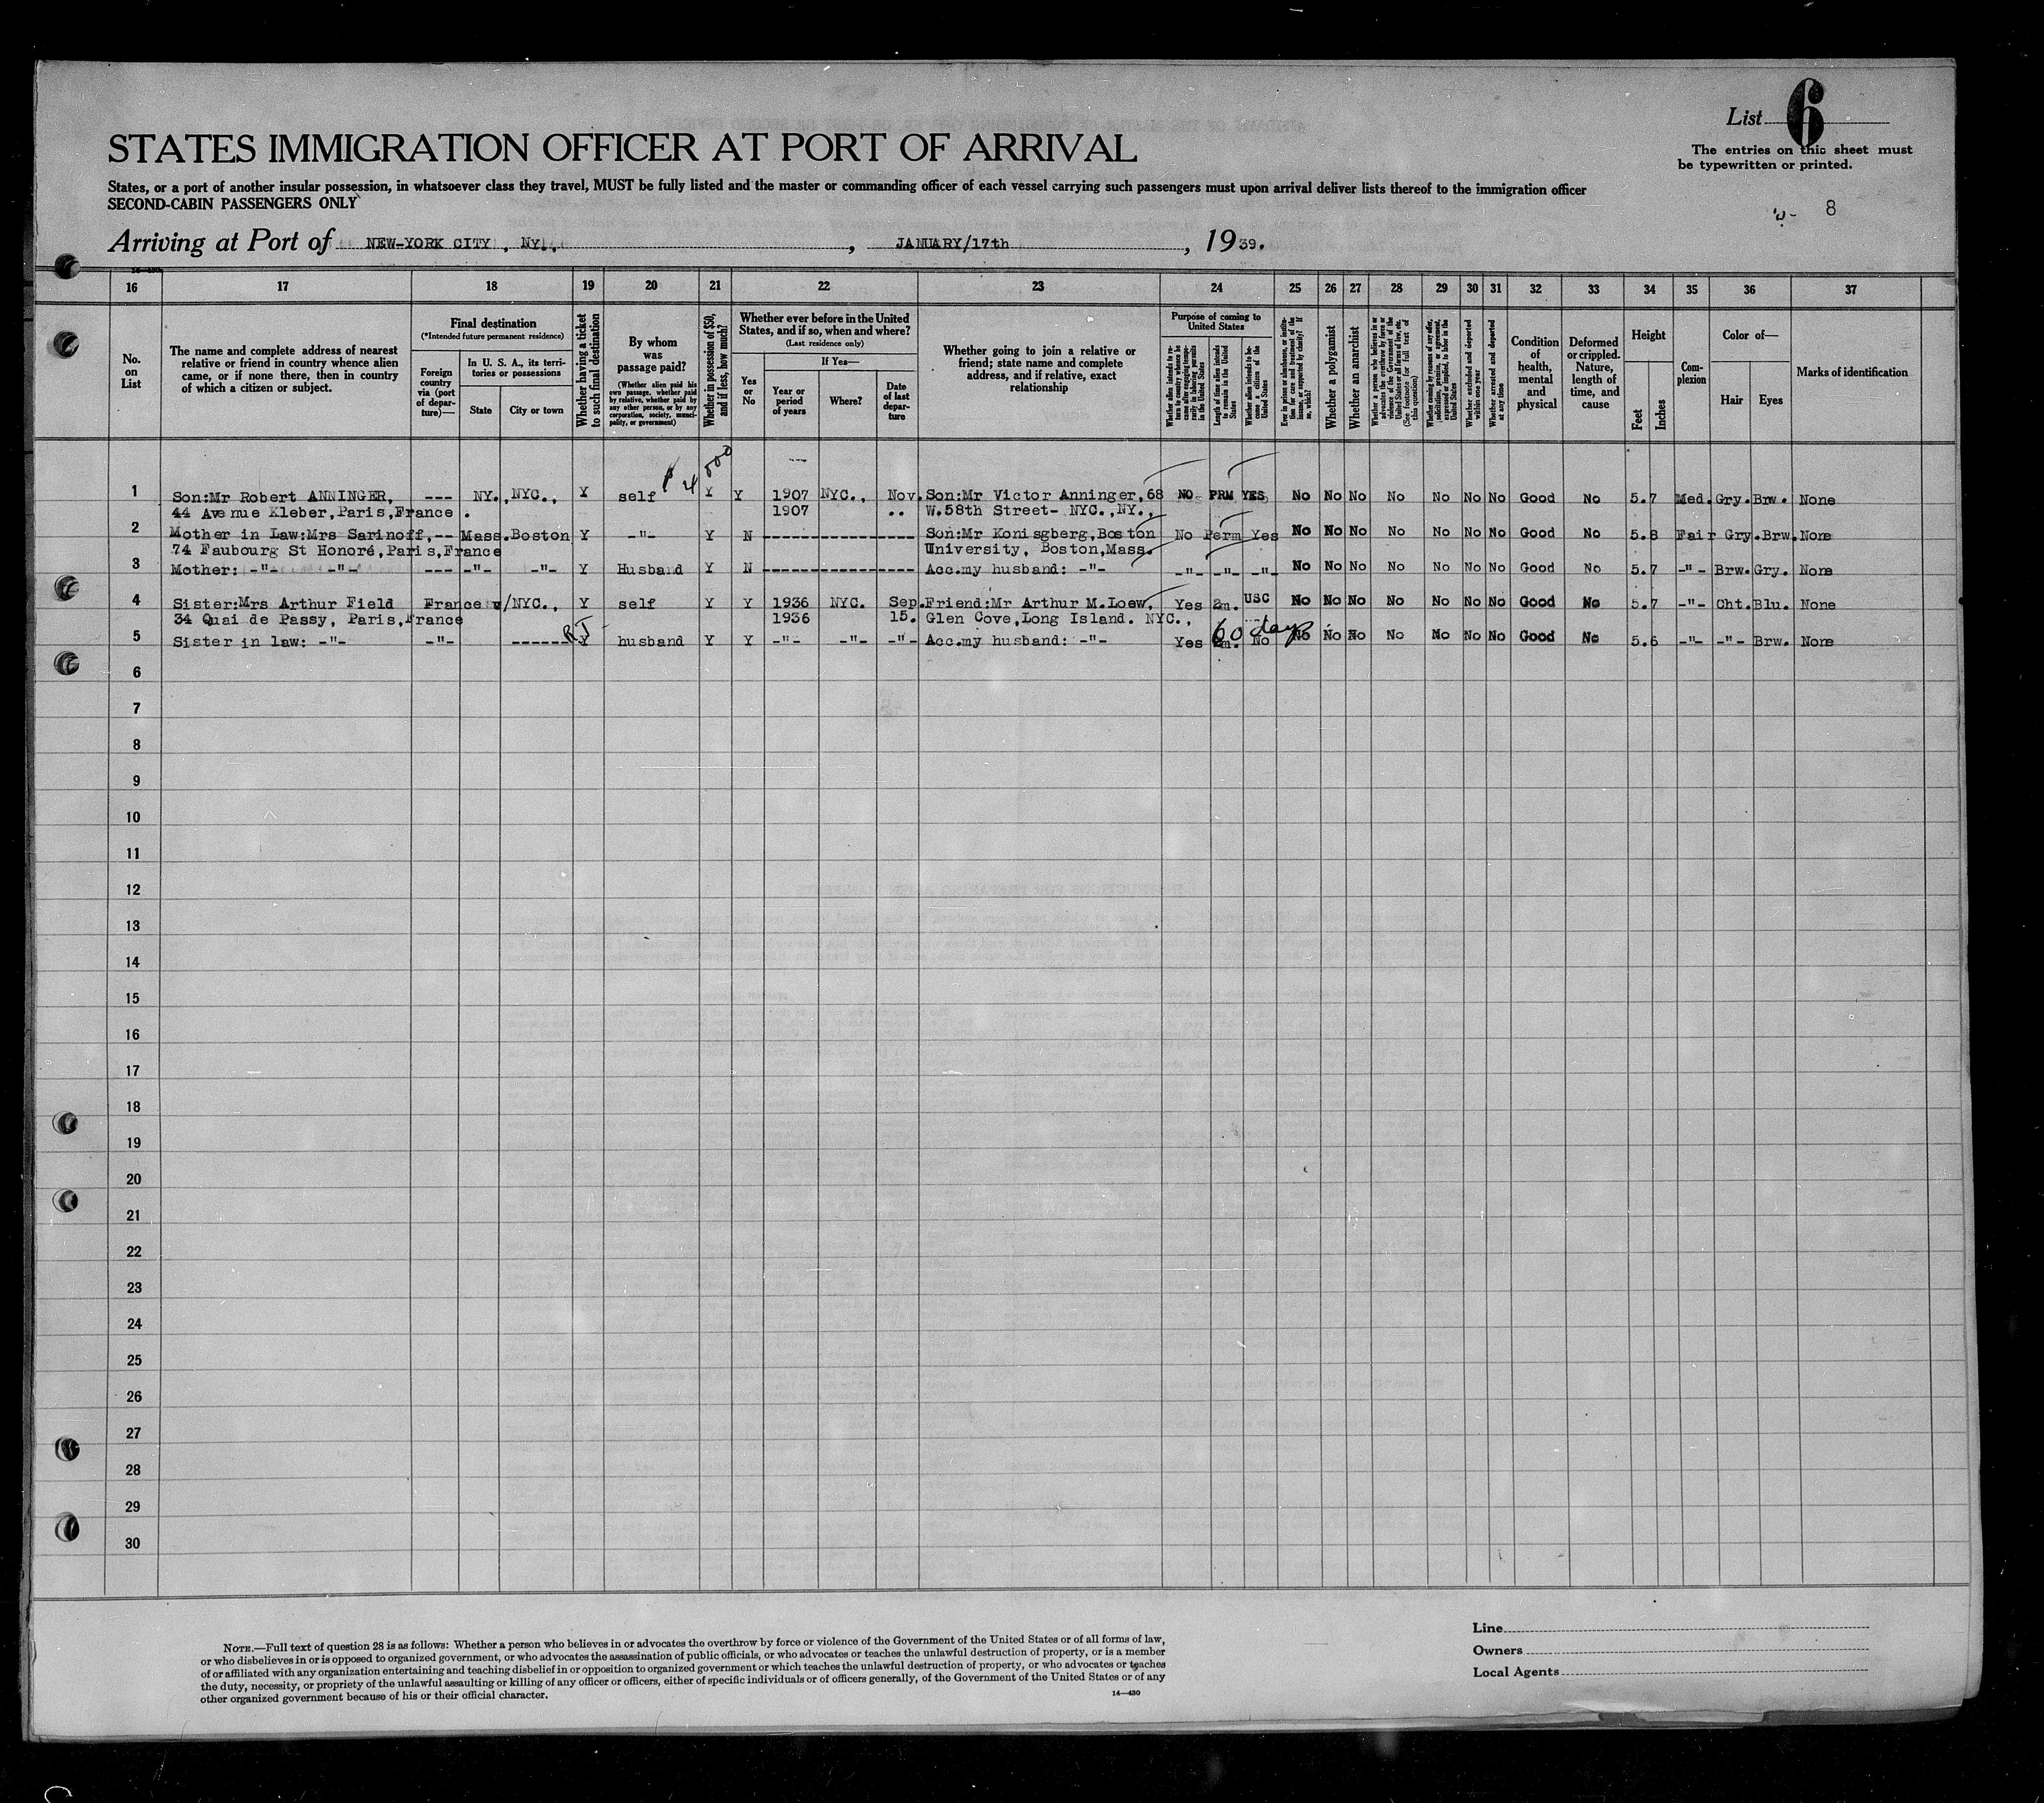 List 6
The entries on this sheet must
be typewritten or printed.
STATES IMMIGRATION OFFICER AT PORT OF ARRIVAL
States, or a port of another insular possession, in whatsoever class they travel, MUST be fully listed and the master or commanding officer of each vessel carrying such passengers must upon arrival deliver lists thereof to the immigration officer
SECOND-CABIN PASSENGERS ONLY
8
Arriving at Port of NEW-YORK CITY, NY., , JANUARY/17th , 1939.
16 17 18 19 20 21 22 23 24 25 26 27 28 29 30 31 32 33 34 35 36 37
No. on List
The name and complete address of nearest relative or friend in country whence alien came, or if none there, then in country of which a citizen or subject.
Final destination
(*Intended future permanent residence)
Foreign country via (port of departure)—
In U. S. A., its territories or possessions
State
City or town
Whether having a ticket to such final destination
By whom was passage paid?
(Whether alien paid his own passage, whether paid by relative, whether paid by any other person, or by any corporation, society, municipality, or government)
Whether in possession of $50, and if less, how much?
Whether ever before in the United States, and if so, when and where?
(Last residence only)
Yes or No
If Yes—
Year or period of years
Where?
Date of last departure
Whether going to join a relative or friend; state name and complete address, and if relative, exact relationship
Purpose of coming to United States
Whether alien intends to return to country whence he came after engaging temporarily in laboring pursuits in the United States
Length of time alien intends to remain in the United States
Whether alien intends to become a citizen of the United States
Ever in prison or almshouse, or institution for care and treatment of the insane, or supported by charity? If so, which?
Whether a polygamist
Whether an anarchist
Whether a person who believes in or advocates the overthrow by force or violence of the Government of the United States or all forms of law, etc. (See footnote for full text of this question)
Whether coming by reason of any offer, solicitation, promise, or agreement, expressed or implied, to labor in the United States
Whether excluded and deported within one year
Whether arrested and deported at any time
Condition of health, mental and physical
Deformed or crippled. Nature, length of time, and cause
Height
Feet
Inches
Complexion
Color of—
Hair
Eyes
Marks of identification
1 Son:Mr Robert ANNINGER, --- NY., NYC., Y self Y Y 1907 NYC., Nov. Son:Mr Victor Anninger,68 NO PRM YES No No No No No No No Good No 5.7 Med. Gry. Brw. None
44 Avenue Kleber,Paris,France. 1907 .. W.58th Street- NYC.,NY.,
2 Mother in Law:Mrs Sarinoff,-- Mass. Boston Y -"- Y N ------------------ Son:Mr Konisgberg,Boston No Perm Yes No No No No No No No Good No 5.8 Fair Gry. Brw. None
74 Faubourg St Honoré,Paris,France University, Boston,Mass.
3 Mother: -"- -"- --- -"- -"- Y Husband Y N ------------------ Acc.my husband: -"- -"- -"- -"- No No No No No No No Good No 5.7 -"- Brw. Gry. None
4 Sister:Mrs Arthur Field France v/NYC., Y self Y Y 1936 NYC. Sep. Friend:Mr Arthur M.Loew, Yes 2m. USC No No No No No No No Good No 5.7 -"- Cht. Blu. None
34 Quai de Passy, Paris,France 1936 15. Glen Cove,Long Island. NYC.,
60 days
5 Sister in law: -"- -"- ------ Y husband Y Y -"- -"- -"- Acc.my husband: -"- Yes 2m. No No No No No No No No Good No 5.6 -"- -"- Brw. None
6
7
8
9
10
11
12
13
14
15
16
17
18
19
20
21
22
23
24
25
26
27
28
29
30
NOTE.—Full text of question 28 is as follows: Whether a person who believes in or advocates the overthrow by force or violence of the Government of the United States or of all forms of law,
or who disbelieves in or is opposed to organized government, or who advocates the assassination of public officials, or who advocates or teaches the unlawful destruction of property, or is a member
of or affiliated with any organization entertaining and teaching disbelief in or opposition to organized government or which teaches the unlawful destruction of property, or who advocates or teaches
the duty, necessity, or propriety of the unlawful assaulting or killing of any officer or officers, either of specific individuals or of officers generally, of the Government of the United States or of any
other organized government because of his or their official character.
14—430
Line
Owners
Local Agents